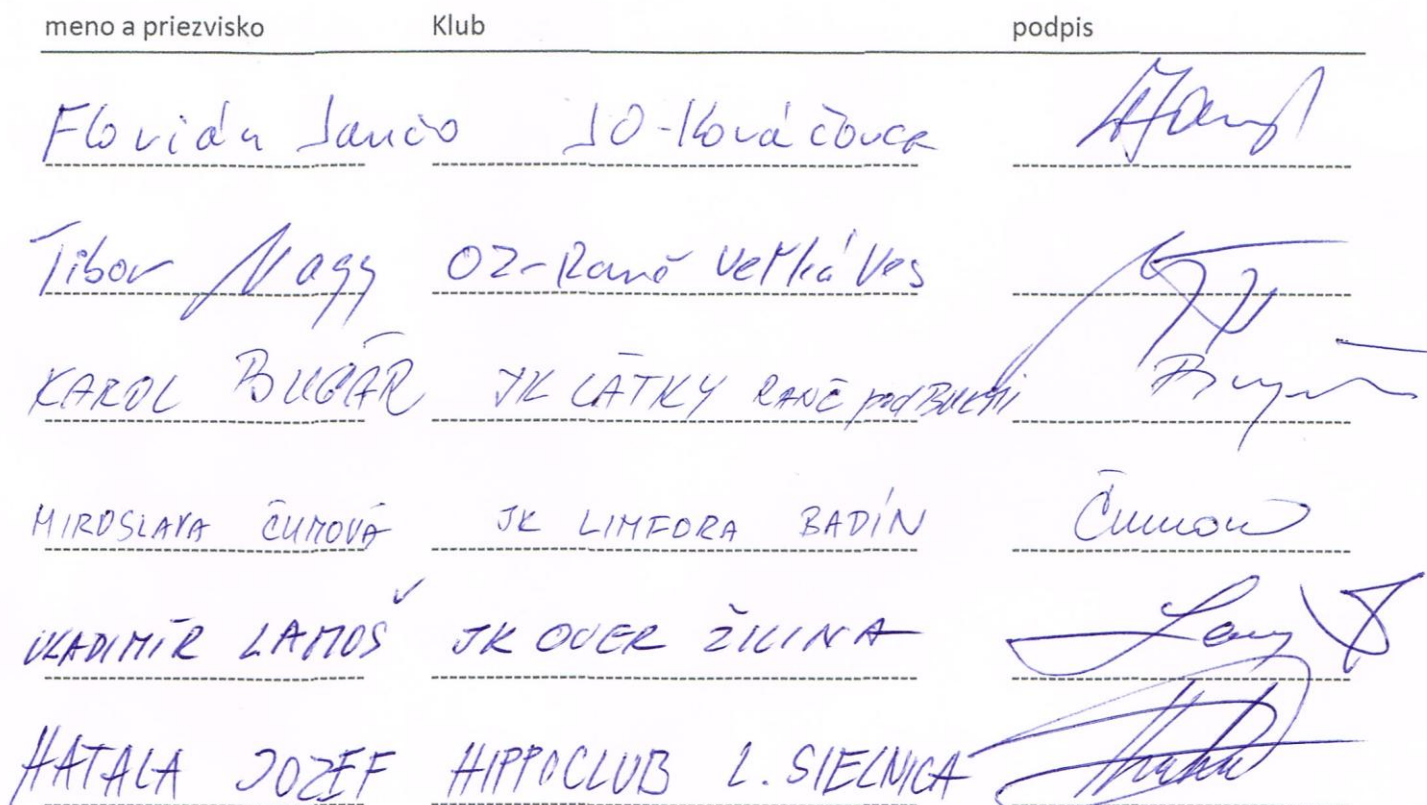 meno a priezvisko Klub podpis
Florián Jančo JO-Kováčovce
Tibor Nagy OZ-Ranč Veľká Ves
KAROL BUGÁR JK LÁTKY RANČ pod BUKMI
MIROSLAVA ČUMOVÁ JK LIMFORA BADÍN Čumová
VLADIMÍR LAMOŠ JK OVER ŽILINA
HATALA JOZEF HIPPOCLUB L. SIELNICA